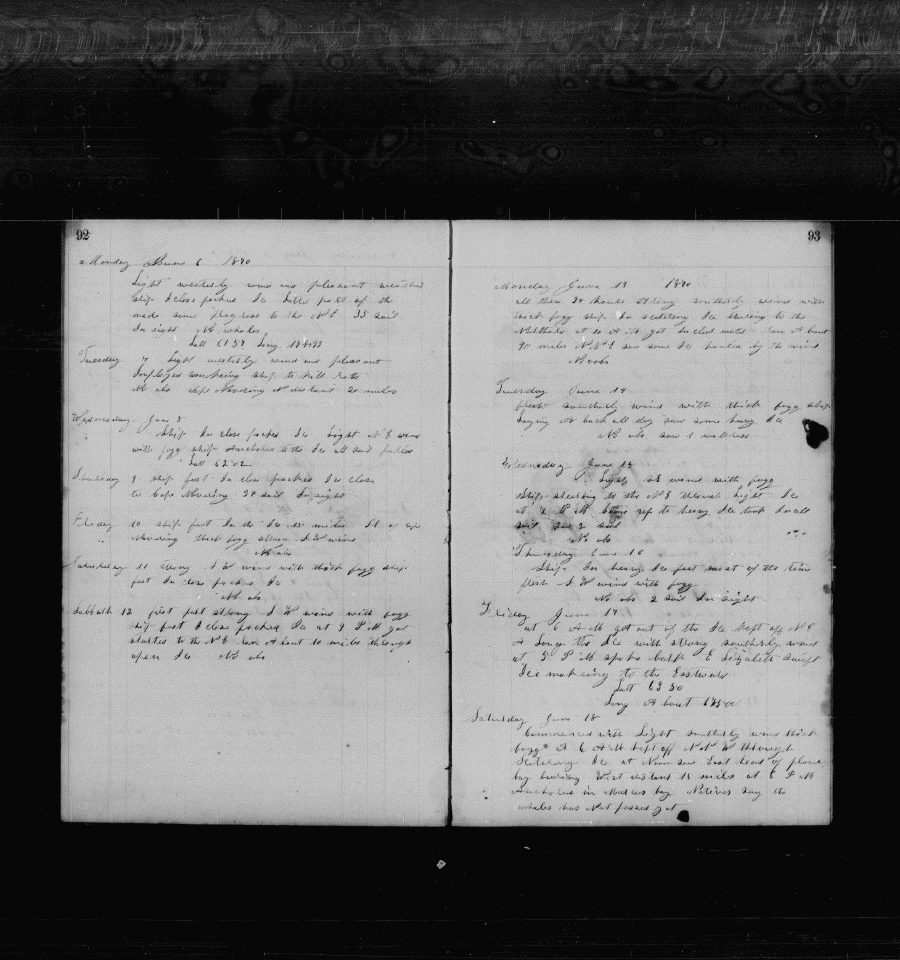 92
Monday June 6 1870
Light westerly wind and pleasant weather
ship I close packed Ice latter part of the
made some progress to the N E 35 sail
In sight No whales
Latt 61 59 Long
Tuesday 7 Light westerly wind and pleasant
Imployed smokeing ship to kill rats
No obs Cape Navering N distant 20 miles
Wednesday June 8
Ship In close packed Ice Light N E wind
with fogg ship Anchored to the Ice all sail furled
Latt 62 02
Thursday 9 ship fast In close packed Ice close
to Cape Navering 30 sail In sight
Friday 10 ship fast In the Ice 15 miles of Cape
Navering thick fogg strong S W wind
No obs
Saturday 11 strong S W wind with thick fogg ship
fast In close packed Ice
No obs
Sabbath 12 first part strong S W wind with fogg
ship fast I close packed Ice at 3 P M got
started to the N E run About 10 miles through
open Ice No obs
93
Monday June 13 1870
all these 24 hours strong southerly wind with
thick fogg ship In scattering Ice steering to the
Northard at 10 A M got In clear water run About
90 miles N N E saw some Ice by the wind
No obs
Tuesday June 14
fresh southerly wind with thick fogg ship
Laying A back all day saw some heavy Ice
No obs saw 1 wallress
Wednesday June 15
Light S E wind with fogg
Ship steering to the N E through Light Ice
at 2 P M came up to heavy Ice took In all
sail saw 2 sail
No obs
Thursday June 16
Ship In heavy Ice fast most of the time
fresh S W wind with fogg
No obs 2 sail In sight
Friday June 17
at 6 A M got out of the Ice kept off N E
A Long the Ice with strong southerly wind
at 3 P M spoke bark Elizabeth Swift
Ice makeing to the Eastward
Latt 63 30
Long About
Saturday June 18
Commenced with Light southerly wind thick
fogg at 6 A M kept off N N W through
Scatering Ice at Noon saw East head of plover
bay bearing West distant 15 miles at 6 P M
Anchored in bay Natives say the
whales has Not passed yet